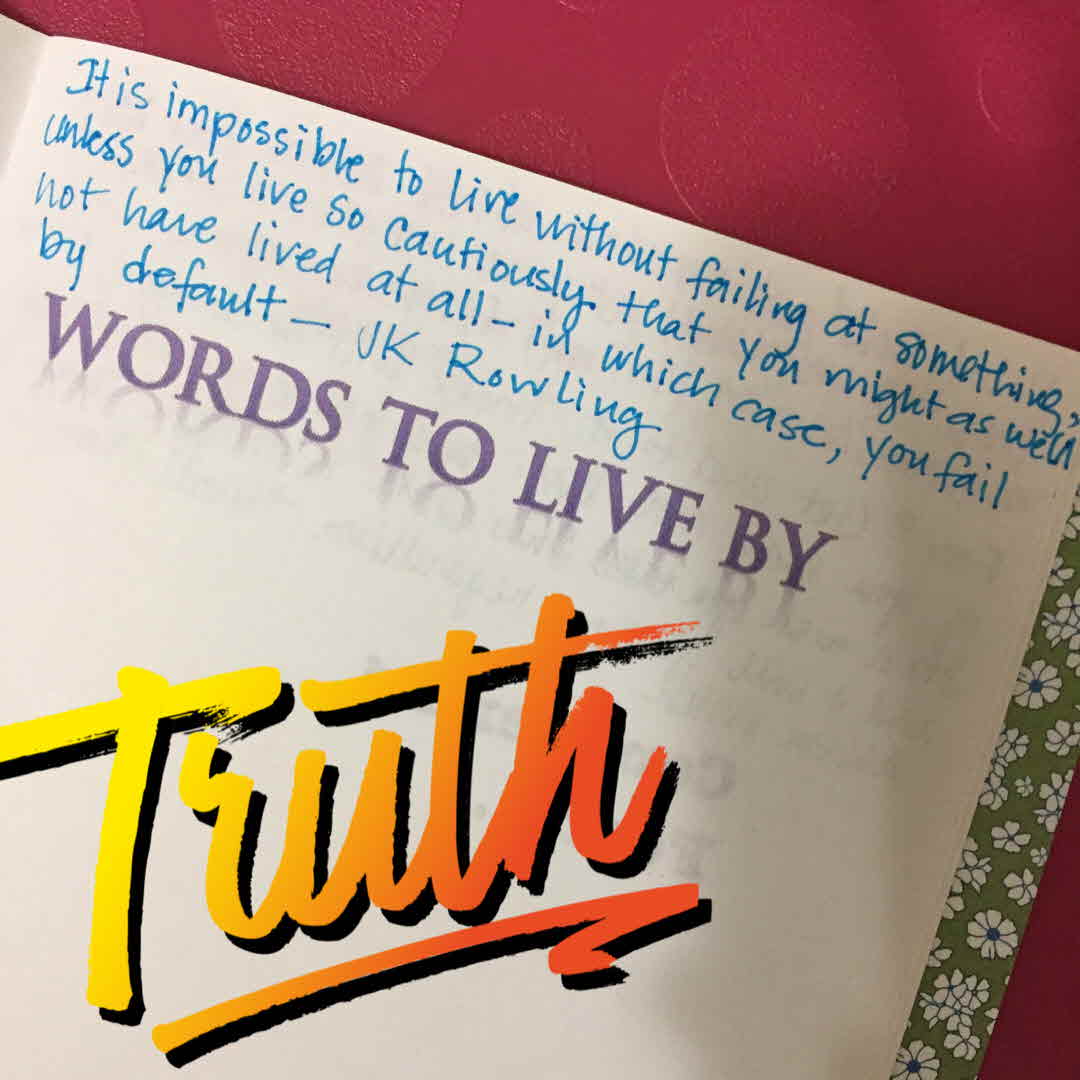 It is impossible to live without failing at something,
unless you live so cautiously that you might as well
not have lived at all - in which case, you fail
by default - JK Rowling
WORDS TO LIVE BY
Truth